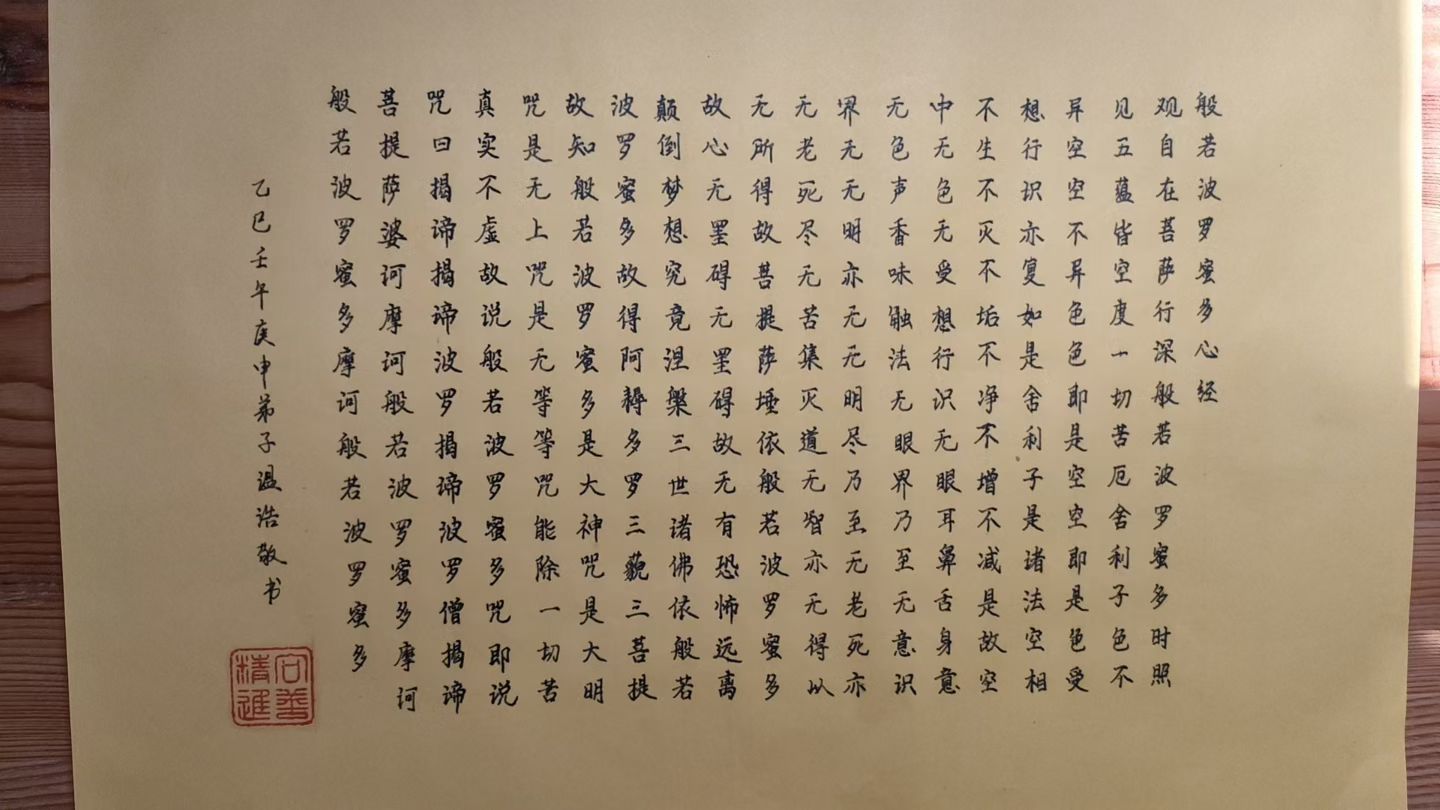 般若波罗蜜多心经
观自在菩萨行深般若波罗蜜多时照
见五蕴皆空度一切苦厄舍利子色不
异空空不异色色即是空空即是色受
想行识亦复如是舍利子是诸法空相
不生不灭不垢不净不增不减是故空
中无色无受想行识无眼耳鼻舌身意
无色声香味触法无眼界乃至无意识
界无无明亦无无明尽乃至无老死亦
无老死尽无苦集灭道无智亦无得以
无所得故菩提萨埵依般若波罗蜜多
故心无罣碍无罣碍故无有恐怖远离
颠倒梦想究竟涅槃三世诸佛依般若
波罗蜜多故得阿耨多罗三藐三菩提
故知般若波罗蜜多是大神咒是大明
咒是无上咒是无等等咒能除一切苦
真实不虚故说般若波罗蜜多咒即说
咒曰揭谛揭谛波罗揭谛波罗僧揭谛
菩提萨婆诃摩诃般若波罗蜜多摩诃
般若波罗蜜多摩诃般若波罗蜜多
乙巳壬午庚申弟子温浩敬书
向善
精進